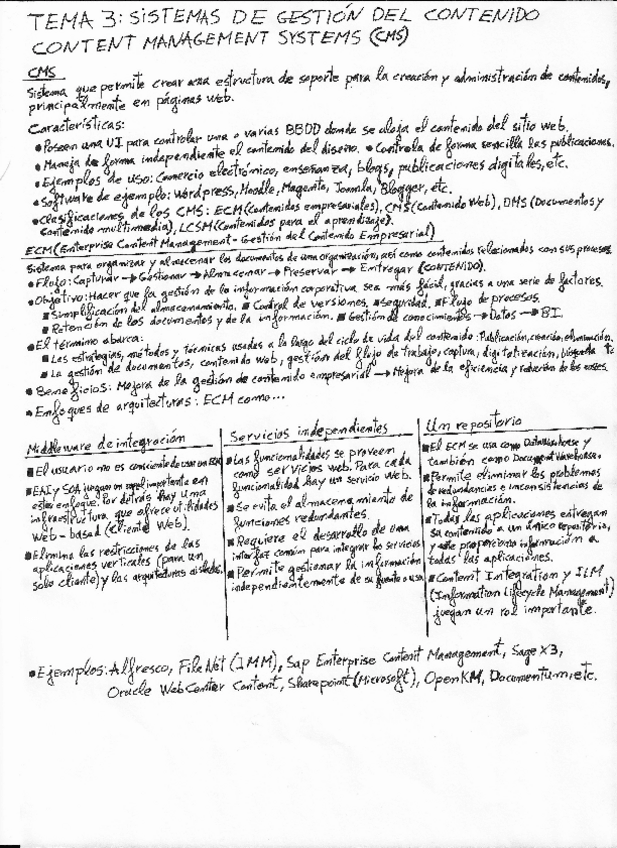 TEMA 3: SISTEMAS DE GESTIÓN DEL CONTENIDO
CONTENT MANAGEMENT SYSTEMS (CMS)
CMS
Sistema que permite crear una estructura de soporte para la creación y administración de contenidos,
principalmente en páginas web.
Características:
• Poseen una UI para controlar una o varias BBDD donde se aloja el contenido del sitio web.
• Maneja de forma independiente el contenido del diseño. • Controla de forma sencilla las publicaciones.
• Ejemplos de uso: Comercio electrónico, enseñanza, blogs, publicaciones digitales, etc.
• Software de ejemplo: Wordpress, Moodle, Magento, Joomla, Blogger, etc.
• Clasificaciones de los CMS: ECM (Contenidos empresariales), CMS (Contenido Web), DMS (Documentos y
contenido multimedia), LCSM (Contenidos para el aprendizaje).
ECM (Enterprise Content Management - Gestión del Contenido Empresarial)
Sistema para organizar y almacenar los documentos de una organización, así como contenidos relacionados con sus procesos.
• Flujo: Capturar → Gestionar → Almacenar → Preservar → Entregar (CONTENIDO).
• Objetivo: Hacer que la gestión de la información corporativa sea más fácil, gracias a una serie de factores.
■ Simplificación del almacenamiento. ■ Control de versiones. ■ Seguridad. ■ Flujo de procesos.
■ Retención de los documentos y de la información. ■ Gestión de conocimientos → Datos → BI
• El término abarca:
■ Las estrategias, métodos y técnicas usadas a lo largo del ciclo de vida del contenido: Publicación, creación, eliminación.
■ La gestión de documentos, contenido web, gestión del flujo de trabajo, captura, digitalización, búsqueda
• Beneficios: Mejora de la gestión de contenido empresarial → Mejora de la eficiencia y reducción de los costes.
• Enfoques de arquitecturas: ECM como...
Middleware de integración
■ El usuario no es consciente de usar un ECM
■ EAI y SOA juegan un papel importante en
este enfoque. Por detrás hay una
infraestructura que ofrece utilidades
Web-based (Cliente Web).
■ Elimina las restricciones de las
aplicaciones verticales (para un
solo cliente) y las arquitecturas aisladas.
Servicios independientes
■ Las funcionalidades se proveen
como servicios web. Para cada
funcionalidad hay un servicio Web.
■ Se evita el almacenamiento de
funciones redundantes.
■ Requiere el desarrollo de una
interfaz común para integrar los servicios
■ Permite gestionar la información
independientemente de su fuente o uso.
Un repositorio
■ El ECM se usa como DataWarehouse y
también como Document Warehouse.
■ Permite eliminar los problemas
de redundancias e inconsistencias de
la información.
■ Todas las aplicaciones entregan
su contenido a un único repositorio,
y este proporciona información a
todas las aplicaciones.
■ Content Integration y ILM
(Information Lifecycle Management)
juegan un rol importante.
• Ejemplos: Alfresco, FileNet (IMM), Sap Enterprise Content Management, Sage X3,
Oracle WebCenter Content, Sharepoint (Microsoft), OpenKM, Documentum, etc.